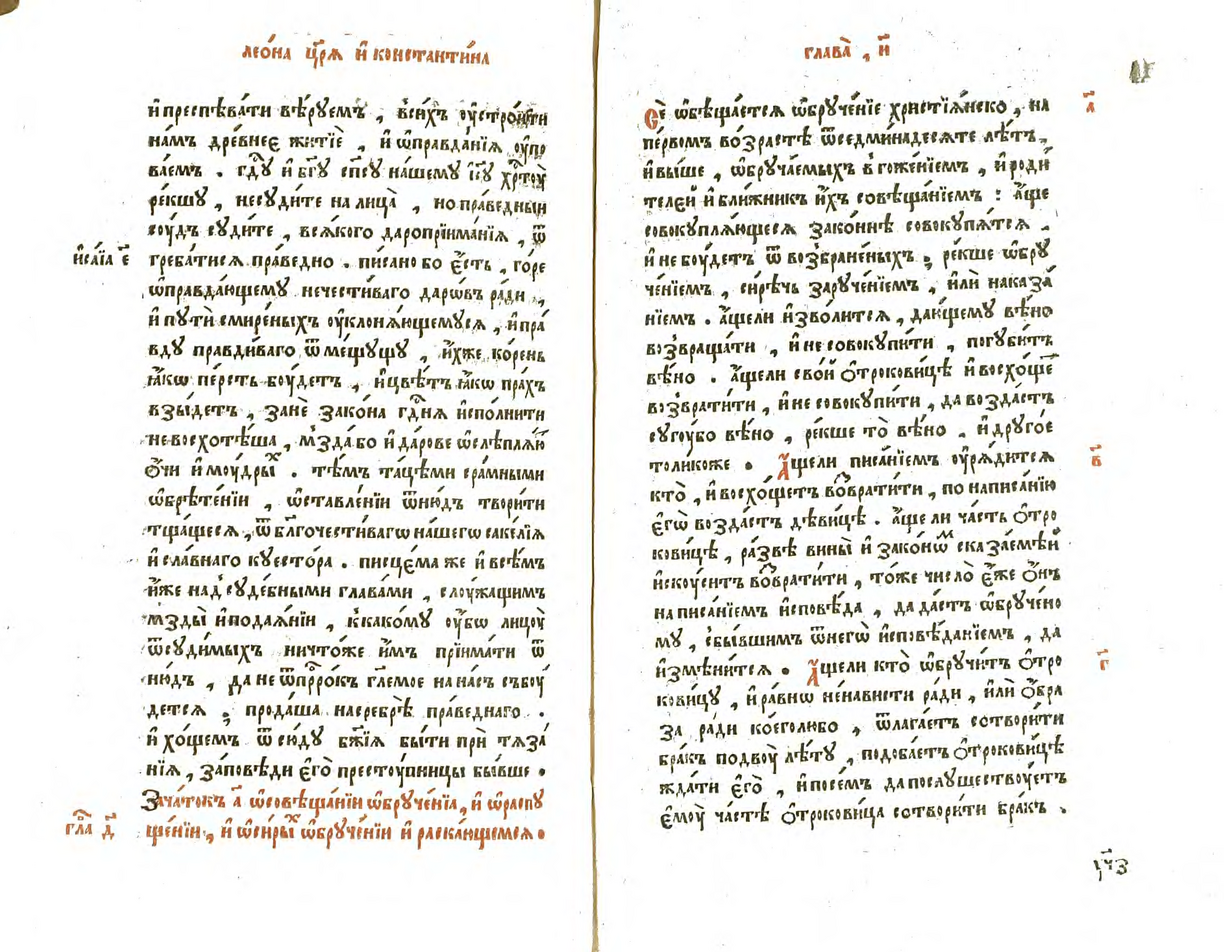 леѻ́на цр҃ѧ и҆ константи́на
и҆преспѣва́ти вѣ́рꙋемъ , всѝхъ ᲂу҆строи́ти
на́мъ древнеє житїѐ , и҆ ѡ҆правда́нїѧ ᲂу҆по
ва́емъ . гдⷭ҇ꙋ и҆ бг҃ꙋ сп҃сꙋ на́шемꙋ і҆с҃ꙋ хрⷭ҇тоу
ре́кшꙋ , несꙋди́те на лица̀ , но пра́ведныи
соу́дъ сꙋди́те , всѧ́кого даропрїима́нїѧ , ѿ
и҆са́їа є҃
греба́тисѧ пра́ведно . писано бо є҆́сть , го́ре
ѡ҆правда́ющемꙋ нечести́ваго даро́въ ра́ди ,
и҆ пꙋтѝ смире́ныхъ ᲂу҆клонѧ́ющемꙋсѧ , и҆ пра́
вдꙋ правди́ваго ѿме́щꙋщꙋ , и҆́хже ко́рень
ꙗ҆́кѡ пе́рсть боу́детъ , и҆ цвѣ́тъ ꙗ҆́кѡ пра́хъ
взы́детъ , занѐ зако́на гдⷭ҇нѧ и҆спо́лнити
не восхотѣ́ша , мзда́ бо и҆ да́рове ѡ҆слѣплѧ́ю
ѻ҆́чи и҆ моу́дрыⷯ . тѣ́мъ таце́ми сра́мными
ѡ҆брѣ́тенїи , ѡ҆ставле́нїи ѿню́дъ твори́ти
тща́щесѧ , ѿ бл҃гочести́вагѡ на́шегѡ саке́лїѧ
и҆ сла́внаго кꙋесто́ра . писце́ма же и҆ все́мъ
и҆́же над̾ сꙋде́бными глава́ми , слоужа́щимъ
мзды̀ и҆ подаѧ́нїи , к̾ како́мꙋ ᲂу҆́бѡ лицоу̀
ѿсꙋди́мыхъ ничто́же и҆̀мъ прїима́ти ѿ
ню́дъ , да не ѿпрⷪ҇ро́къ гл҃емое на на́съ събоу́
детсѧ ; прода́ша на сребрѣ̀ пра́веднаго .
и҆ хо́щемъ ѿсю́дꙋ бж҃їѧ бы́ти при тѧза́
нїѧ , за́поведи є҆гѐ престоу́пницы бы́вше .
Зача́токъ а҃ ѡ҆совѣща́нїи ѡ҆брꙋче́нїѧ , и҆ ѡ҆распꙋ
гла҃ д҃
ще́нїи , и҆ ѡ҆си́рыⷯ ѡ҆брꙋче́нїи и҆ раска́ющемсѧ .
глава̀ , и҃
Сѐ ѡ҆бѣща́етсѧ ѡ҆брꙋче́нїе христїѧ́неко , на
а҃
пе́рвомъ во́зрастѣ ѿседмина́десѧте лѣ́тъ ,
и҆ вы́ше , ѡ҆брꙋча́емыхъ в̾ гоже́нїемъ , и҆ роди́
телєй и҆ бли́жникъ и҆́хъ совѣща́нїемъ : а҆́ще
совокꙋплѧ́ющеесѧ зако́ннѣ совокꙋпѧ́тсѧ .
и҆ не боу́детъ ѿ возбране́ныхъ ; ре́кше ѡ҆брꙋ
че́нїемъ , сирѣ́чь зарꙋче́нїемъ , и҆лѝ наказа́
нїемъ . а҆́щели и҆зво́литсѧ , да́вшемꙋ вѣ́но
возвраща́ти , и҆ не совокꙋпи́ти , погꙋби́тъ
вѣ́но . а҆́щели свой ѻ҆трокови́цѣ и҆ восхо́щеⷮ
возврати́ти , и҆ не совокꙋпи́ти , да возда́стъ
сꙋгоу́бо вѣ́но , ре́кше то̀ вѣ́но , и҆ дрꙋго́е
толикоже . А҆́щели писа́нїемъ ᲂу҆рѧди́тсѧ
в҃
кто̀ , и҆ восхо́щетъ воⷥврати́ти , по написа́нїю
є҆гѡ̀ возда́стъ дѣви́цѣ . а҆́ще ли ча́сть ѻ҆тро
кови́цѣ , ра́звѣ вины̀ и҆ зако́нѡⷨ сказа́емѣй
и҆скоу́ситъ воⷥврати́ти , то́же число̀ є҆́же ѻ҆́нъ
на писа́нїемъ и҆сповѣ́да , да да́стъ ѡ҆брꙋче́но
мꙋ , сбы́вшимъ ѿнегѡ̀ и҆сповѣ́данїемъ , да
и҆змѣ́нитсѧ . А҆́щели кто̀ ѡ҆брꙋчи́тъ ѻ҆тро
г҃
кови́цꙋ , и҆ ра́внѡ нена́висти ра́ди , и҆лѝ ѻ҆́бра
за ра́ди ко́еголюбо , ѿлага́етъ сотвори́ти
бра́къ по двоу̀ лѣ́тꙋ , подоба́етъ ѻ҆трокови́цѣ
жда́ти є҆го̀ , и҆ посе́мъ да послꙋшествоу́етъ
є҆моу̀ ча́стѣ ѻ҆трокови́ца сотвори́ти бра́къ .